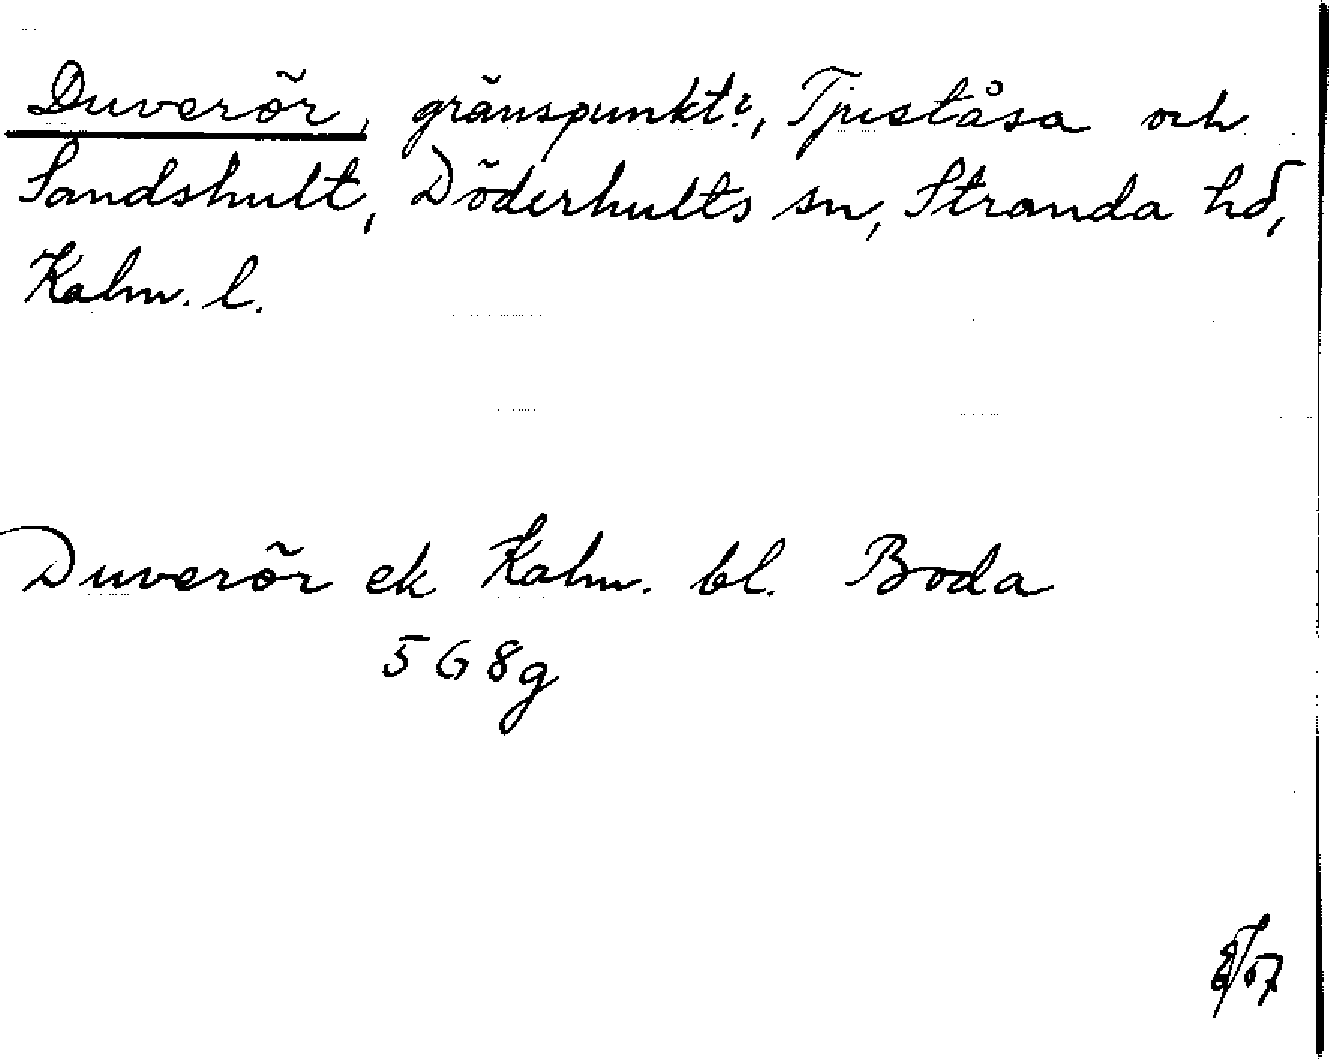 Duverör, gränspunkt?, Tjuståsa och
Sandshult, Döderhults sn, Stranda hd,
Kalm. l.
Duverör ek Kalm. bl. Boda
5 G 8g